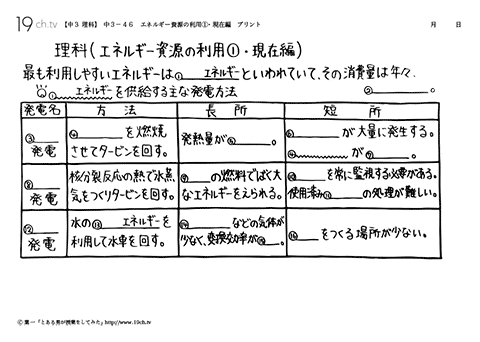 19ch.tv 【中3 理科】 中3-46 エネルギー資源の利用①・現在編 プリント 月 日
理科(エネルギー資源の利用①・現在編)
最も利用しやすいエネルギーは①____エネルギーといわれていて、その消費量は年々②____。
①____エネルギーを供給する主な発電方法
発電名 方法 長所 短所
③____発電 ④____を燃焼させてタービンを回す。 発熱量が⑤____。 ⑥____が大量に発生する。
____が⑦____。
⑧____発電 核分裂反応の熱で水蒸気をつくりタービンを回す。 ⑨____の燃料でばく大なエネルギーをえられる。 ⑩____を常に監視する必要がある。
使用済み⑪____の処理が難しい。
⑫____発電 水の⑬____エネルギーを利用して水車を回す。 ⑭____などの気体が少なく、変換効率が⑮____。 ⑯____をつくる場所が少ない。
© 葉一「とある男が授業をしてみた」 http://www.19ch.tv